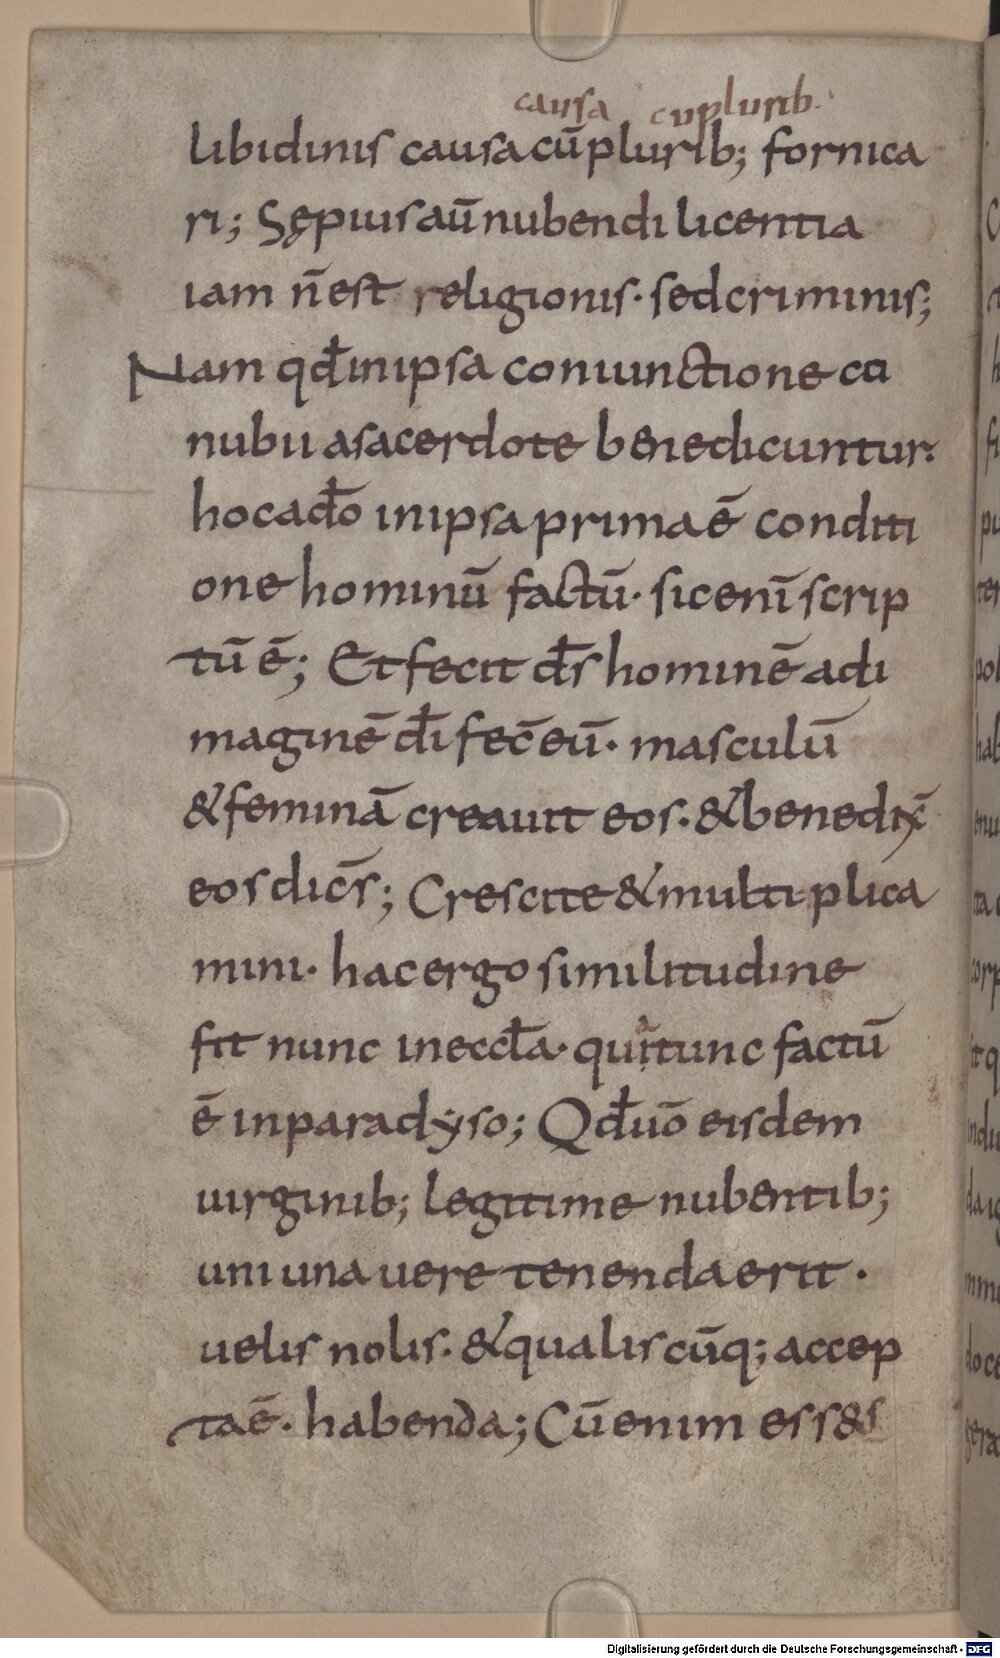 causa cupluribꝫ
libidinis causa cū pluribꝫ fornica
ri; Sępius aū nubendi licentia
iam ñ est religionis· sed criminis;
Nam qđ in ipsa coniunctione co
nubii a sacerdote benedicuntur·
hoc a dō in ipsa prima ē conditi
one hominū factū· sic eni scrip
tū ē; Et fecit ds̄ hominē ad i
maginē dī fec̄ eū· masculū
& feminā creauit eos· & benedix̄
eos dic̄s; Crescite & multiplica
mini· hac ergo similitudine
fit nunc in eccl̄a· quitunc factū
ē in paradyso; Qđ uō eisdem
uirginibꝫ legitime nubentibꝫ
uni una uere tenenda erit·
uelis nolis· & qualiscūqꝫ accep
ta ē· habenda; Cū enim ess&s
Digitalisierung gefördert durch die Deutsche Forschungsgemeinschaft - DFG